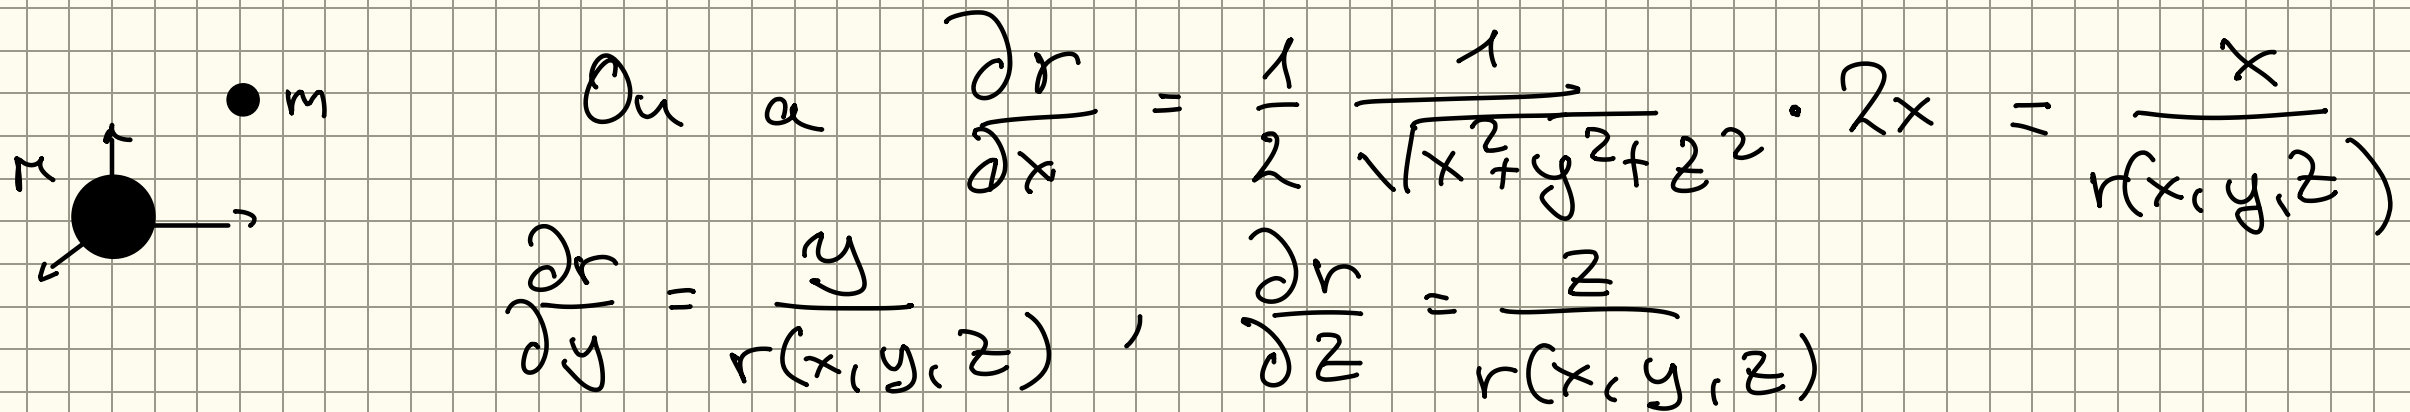 m
M
Ou a ∂r/∂x = 1/2 1/√(x²+y²+z²) · 2x = x/r(x,y,z)
∂r/∂y = y/r(x,y,z) , ∂r/∂z = z/r(x,y,z)